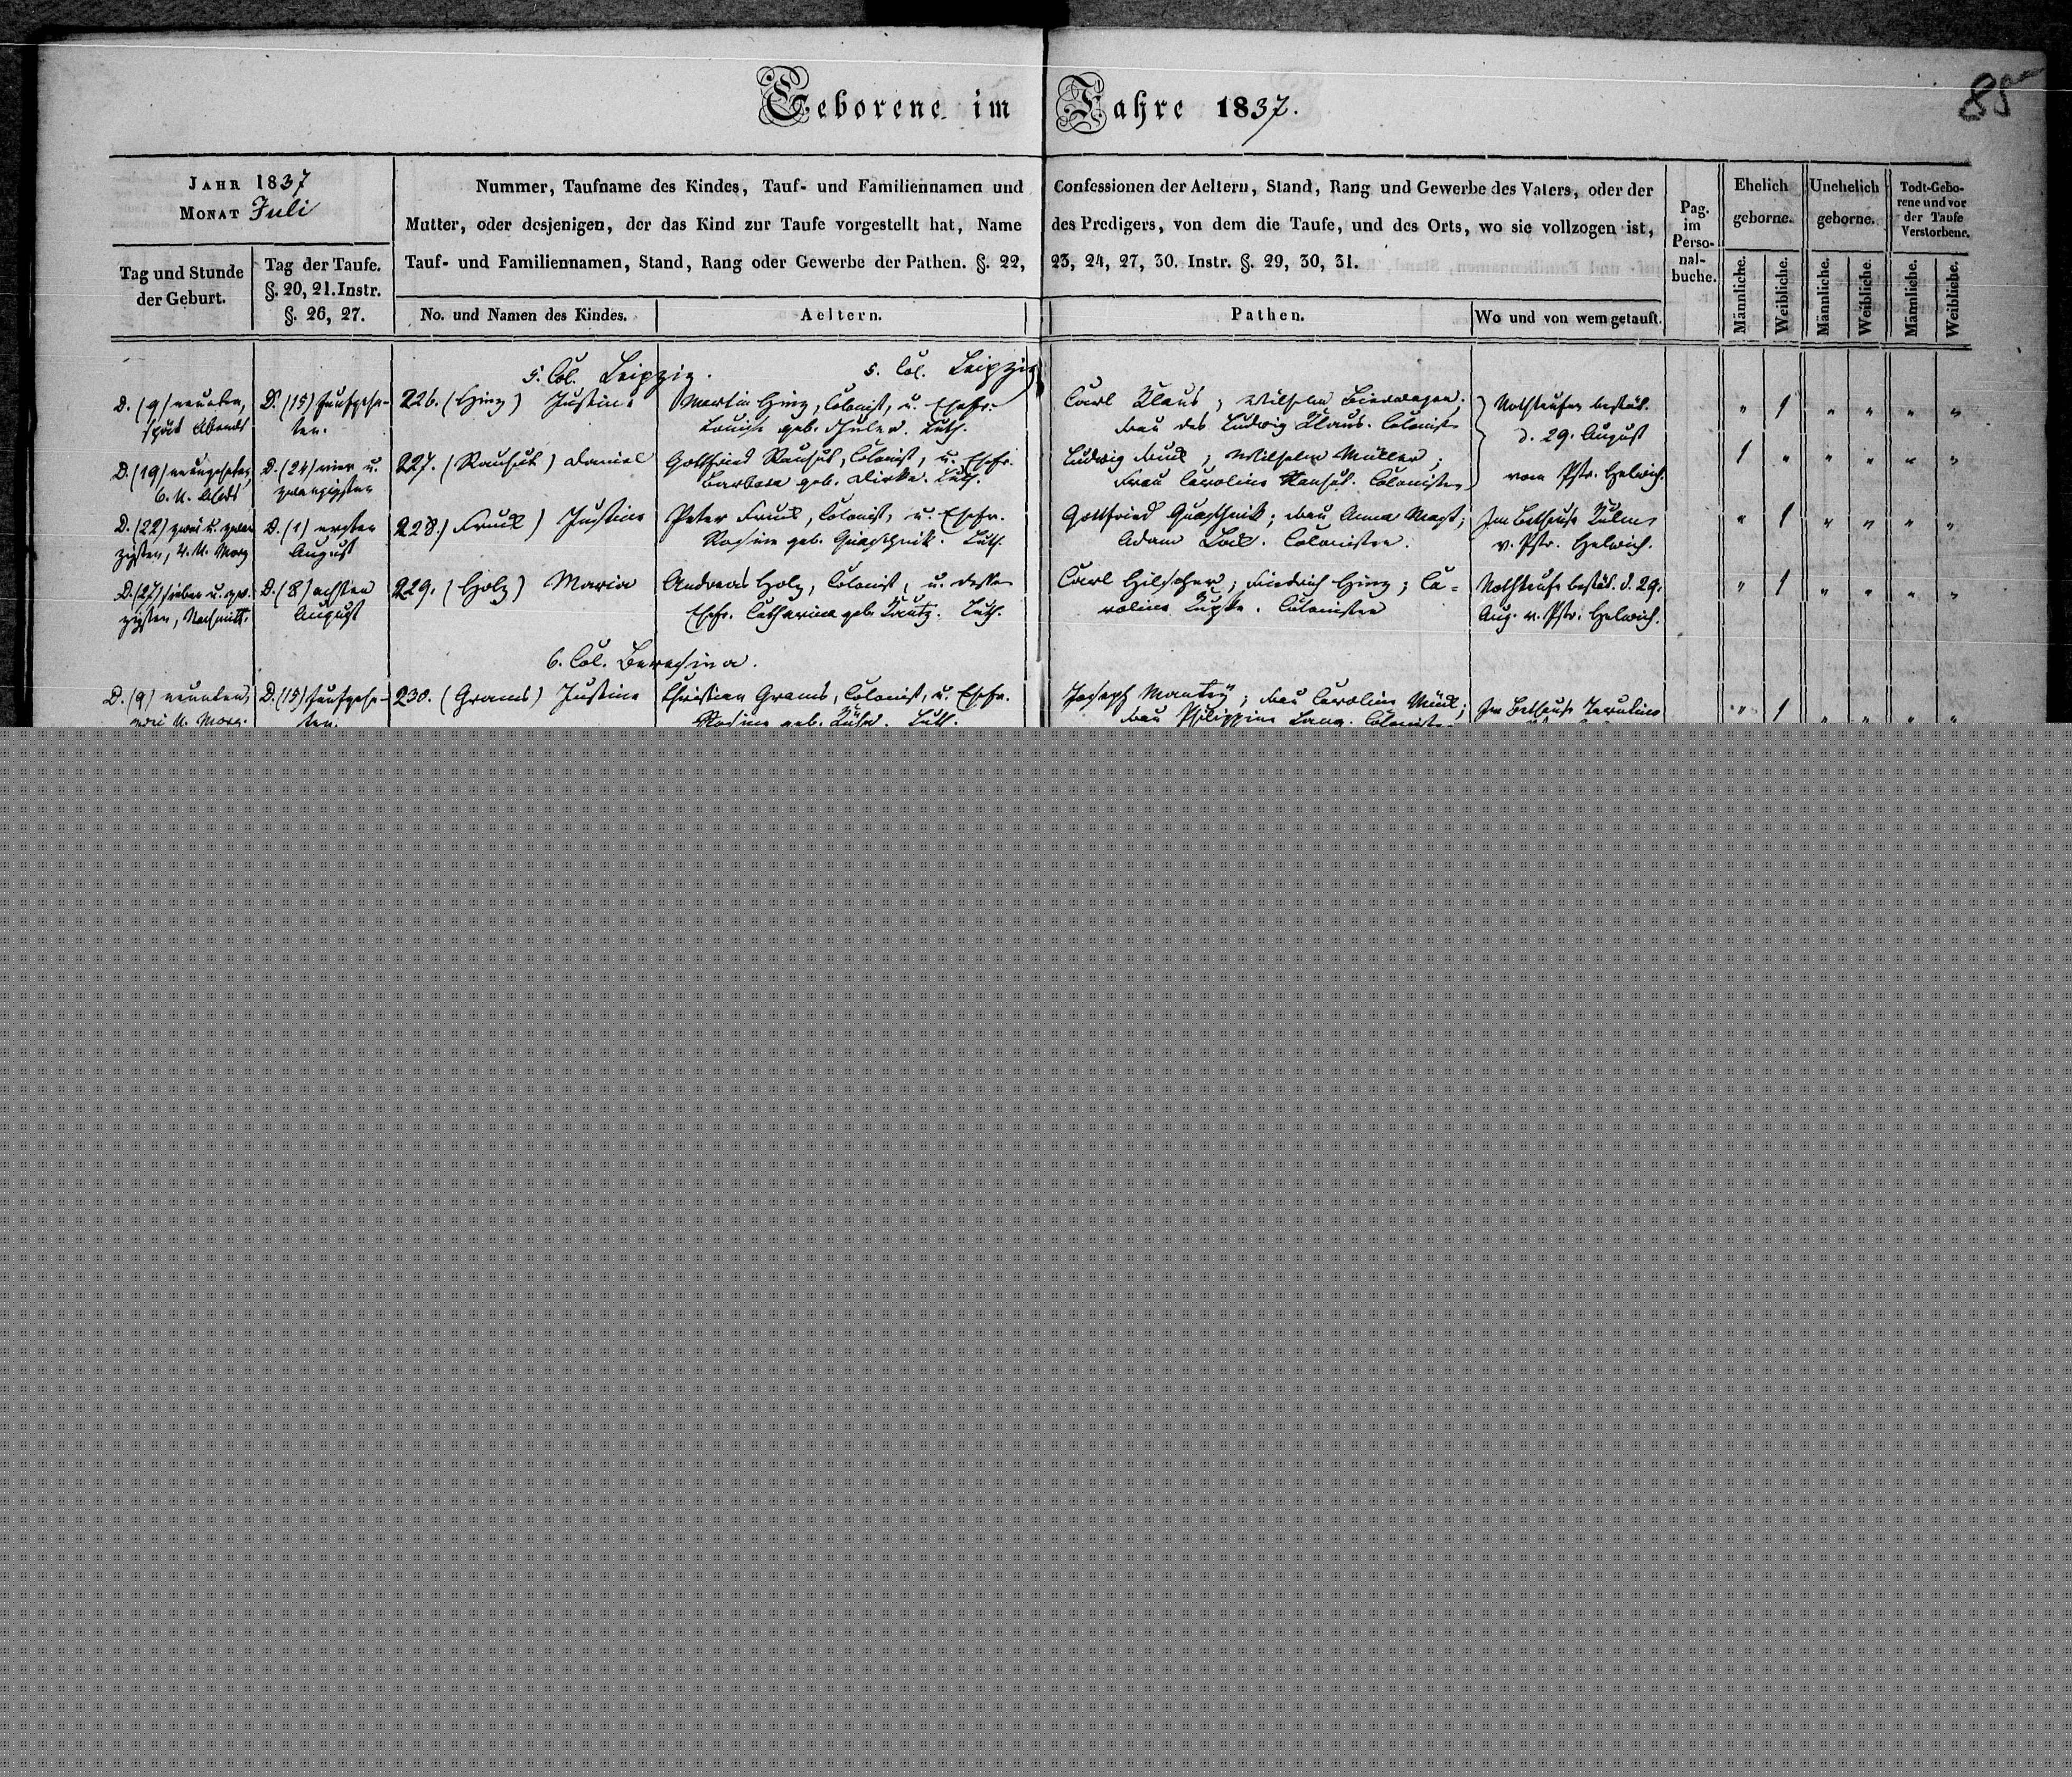 Geborene im Jahre 1837.
85
JAHR 1837
MONAT Juli
Tag und Stunde der Geburt.
Tag der Taufe. §. 20, 21. Instr. §. 26, 27.
Nummer, Taufname des Kindes, Tauf- und Familiennamen und Confessionen der Aeltern, Stand, Rang und Gewerbe des Vaters, oder der
Mutter, oder desjenigen, der das Kind zur Taufe vorgestellt hat, Name des Predigers, von dem die Taufe, und des Orts, wo sie vollzogen ist,
Tauf- und Familiennamen, Stand, Rang oder Gewerbe der Pathen. §. 22, 23, 24, 27, 30. Instr. §. 29, 30, 31.
No. und Namen des Kindes.
Aeltern.
Pathen.
Wo und von wem getauft.
Pag. im Perso-nal-buche.
Ehelich geborne.
Unehelich geborne.
Todt-Gebo-rene und vor der Taufe Verstorbene.
Männliche. Weibliche. Männliche. Weibliche. Männliche. Weibliche.
5. Col. Leipzig. 5. Col. Leipzig
D. (9) neunten, D. (15) funfzehn- 226. (Hinz) Justine Martin Hinz, Colonist, u. Ehefr. Carl Klaus; Wilhelm Bierwagen; Nothtaufen bestät. " 1 " " " "
spät Abends ten. Louise geb. Frau des Ludwig Klaus. Colonisten d. 29. August
D. (19) neunzehnten, D. (24) vier u. 227. (Rauhut) Daniel Gottfried Rauhut, Colonist, u. Ehefr. Ludwig Wilhelm Müller; vom Pstr. Helwich. 1 " " " " "
6. U. Abds zwanzigsten Barbara geb. Luth. Frau Caroline Rauhut. Colonisten
D. (22) zwei u. zwan D. (1) ersten 228. ) Justine Peter Colonist, u. Ehefr. Gottfried Quaschnik; Frau Anna Im Bethause Kulm " 1 " " " "
zigsten, 4. U. Morg August Rosine geb. Quaschnik. Luth. Adam Colonisten. v. Pstr. Helwich.
D. (27) sieben u. zw. D. (8) achten 229. (Holz) Maria Andreas Holz, Colonist, u. dessen Carl Hilscher; Friedrich Hinz; Ca= Nothtaufe bestät. d. 29. " 1 " " " "
zigsten, Nachmitt. August Ehefr. Catharina geb. Luth. roline Colonisten Aug. v. Pstr. Helwich.
6. Col. Beresina.
D. (9) neunten, D. (15) funfzehn- 230. (Grams) Justine Christian Grams, Colonist, u. Ehefr. Joseph Frau Caroline Im Bethause Tarutino " 1 " " " "
U. Morg. ten. Rosine geb. Luth. Frau Philippine Lang. Colonisten